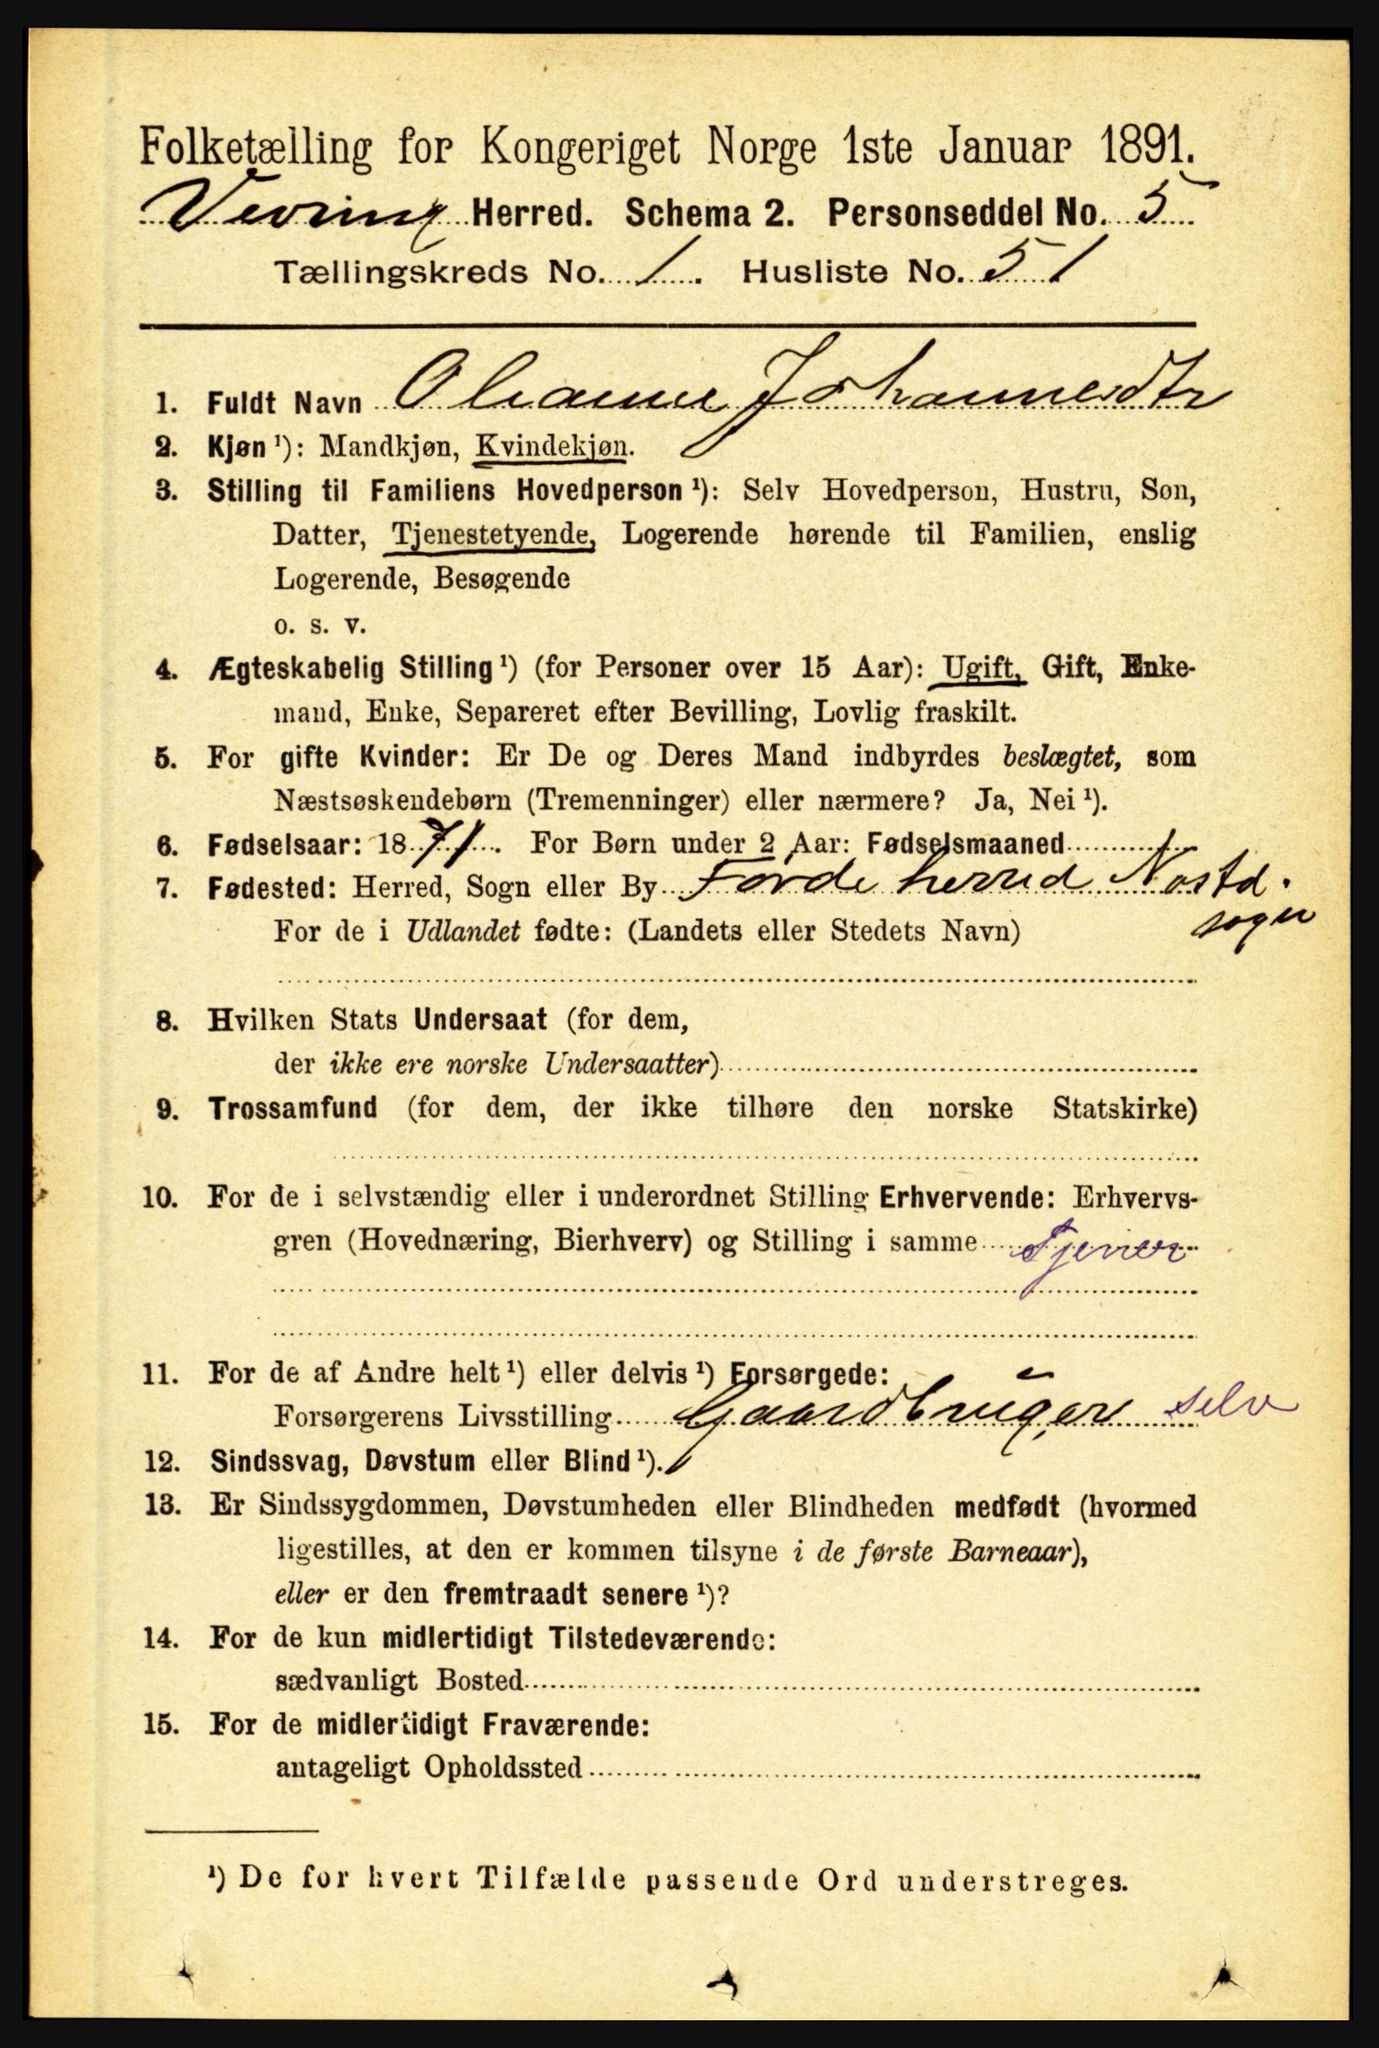 Folketælling for Kongeriget Norge 1ste Januar 1891.
Vevring Herred. Schema 2. Personseddel No. 5
Tællingskreds No. 1. Husliste No. 51
1. Fuldt Navn Olianne Johannesdtr
2. Kjøn ¹): Mandkjøn, Kvindekjøn.
3. Stilling til Familiens Hovedperson ¹): Selv Hovedperson, Hustru, Søn,
Datter, Tjenestetyende, Logerende hørende til Familien, enslig
Logerende, Besøgende
o. s. v.
4. Ægteskabelig Stilling ¹) (for Personer over 15 Aar): Ugift, Gift, Enke-
mand, Enke, Separeret efter Bevilling, Lovlig fraskilt.
5. For gifte Kvinder: Er De og Deres Mand indbyrdes beslægtet, som
Næstsøskendebørn (Tremenninger) eller nærmere? Ja, Nei ¹).
6. Fødselsaar: 1871. For Børn under 2 Aar: Fødselsmaaned
7. Fødested: Herred, Sogn eller By Førde herred Nostd.
sogn
For de i Udlandet fødte: (Landets eller Stedets Navn)
8. Hvilken Stats Undersaat (for dem,
der ikke ere norske Undersaatter)
9. Trossamfund (for dem, der ikke tilhøre den norske Statskirke)
10. For de i selvstændig eller i underordnet Stilling Erhvervende: Erhvervs-
gren (Hovednæring, Bierhverv) og Stilling i samme Tjener
11. For de af Andre helt ¹) eller delvis ¹) Forsørgede:
Forsørgerens Livsstilling Gaardbruger selv
12. Sindssvag, Døvstum eller Blind ¹).
13. Er Sindssygdommen, Døvstumheden eller Blindheden medfødt (hvormed
ligestilles, at den er kommen tilsyne i de første Barneaar),
eller er den fremtraadt senere ¹)?
14. For de kun midlertidigt Tilstedeværende:
sædvanligt Bosted
15. For de midlertidigt Fraværende:
antageligt Opholdssted
¹) De for hvert Tilfælde passende Ord understreges.